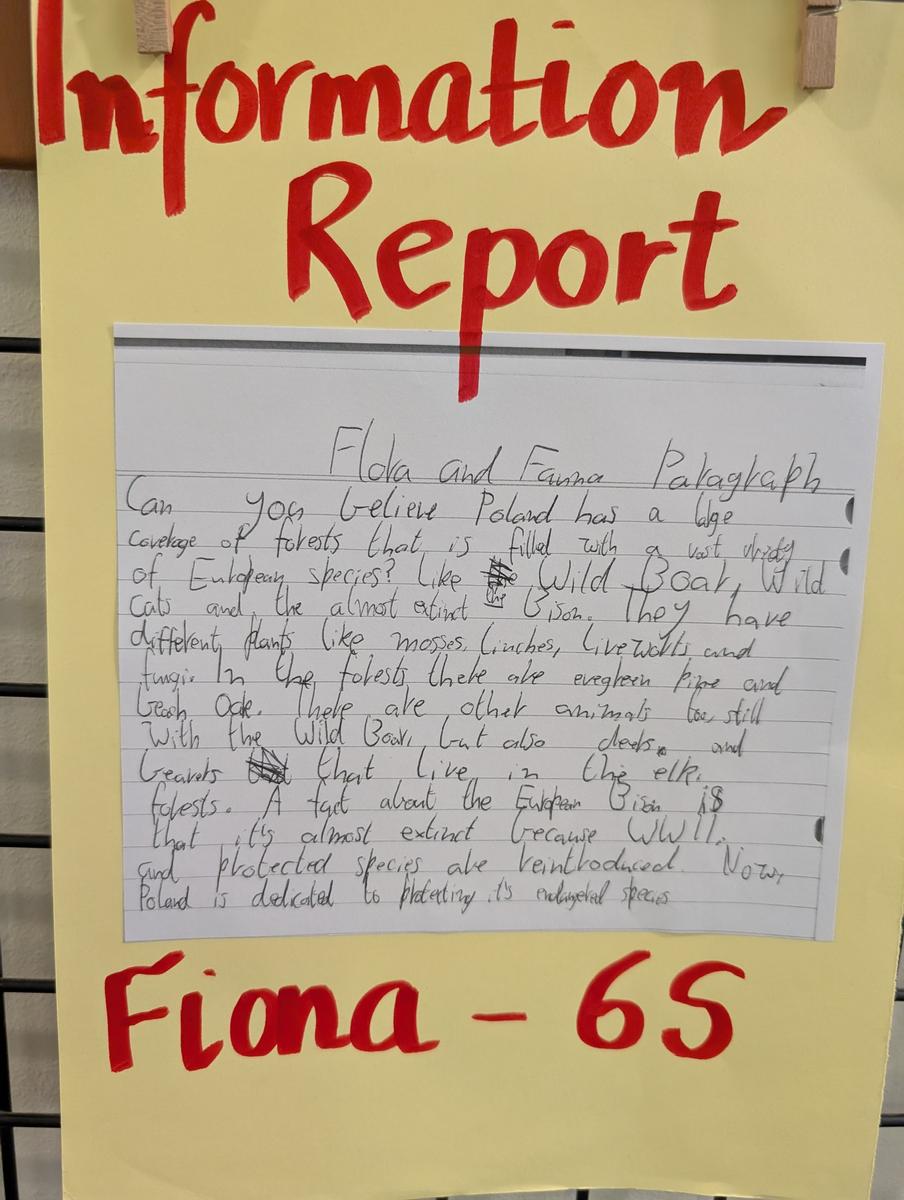 Information
Report
Flora and Fauna Paragraph
Can you believe Poland has a large
coverage of forests that is filled with a vast
of European species? Like the Wild Boar, Wild
Cats and the almost extinct Bison. They have
different plants like mosses, linches, liverworts and
fungi. In the forests there are evegreen Pine and
Oak. There are other animals too, still
With the Wild Boar, but also deers. and
that live in the elk.
forests. A fact about the European Bison is
that it's almost extinct because WWII.
and protected species are reintroduced. Now,
Poland is dedicated to protecting it's endangered species
Fiona - 6S